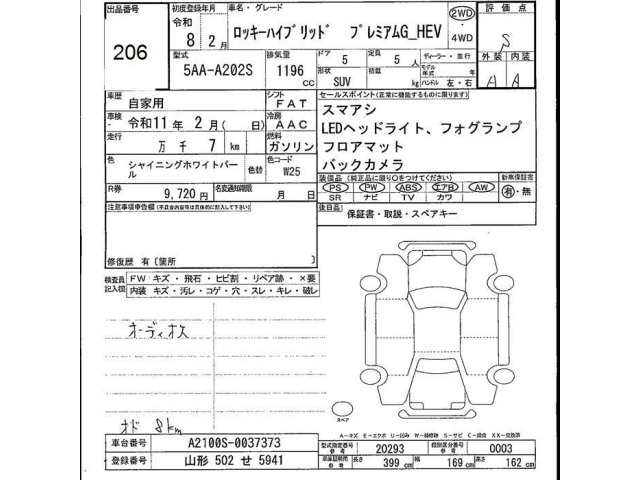 出品番号
206
初度登録年月
令和
8 2月
車名・グレード
ロッキーハイブリッド プレミアムG_HEV
2WD
4WD
評価点
S
型式
5AA-A202S
排気量
1196
CC
ドア
5
形状
SUV
定員
5人
積載
kg
ディーラー・並行
モデル年式 年
ハンドル 左・右
外装 内装
A A
車歴
自家用
シフト
FAT
車検
令和11年 2月( 日)
冷房
AAC
走行
万 千 7 km
燃料
ガソリン
色
シャイニングホワイトパール
色替
色コード
W25
R券
9,720円
名変通知期限
月 日
セールスポイント(正常に機能するものに限ります)
スマアシ
LEDヘッドライト、フォグランプ
フロアマット
バックカメラ
装備品(純正品に限り○をつけてください)
新車保証書
PS PW ABS エアB AW
有・無
SR ナビ TV カワ
後日品
保証書・取説・スペアキー
注意事項申告欄(不具合内容等は具体的に記入して下さい)
修復歴 有〔箇所 〕
検査員記入欄
FW キズ・飛石・ヒビ割・リペア跡・×要
内装 キズ・汚レ・コゲ・穴・スレ・キレ・破レ
オーディオレス
オド 8km
スペア
A-キズ E-エクボ U-凹み W-補修跡 S-サビ C-腐食 XX-交換済
車台番号
A2100S-0037373
登録番号
山形 502 せ 5941
型式指定番号
参考
20293
類別区分番号
参考
0003
車庫証明用
参考
長さ
399 cm
幅
169 cm
高さ
162 cm